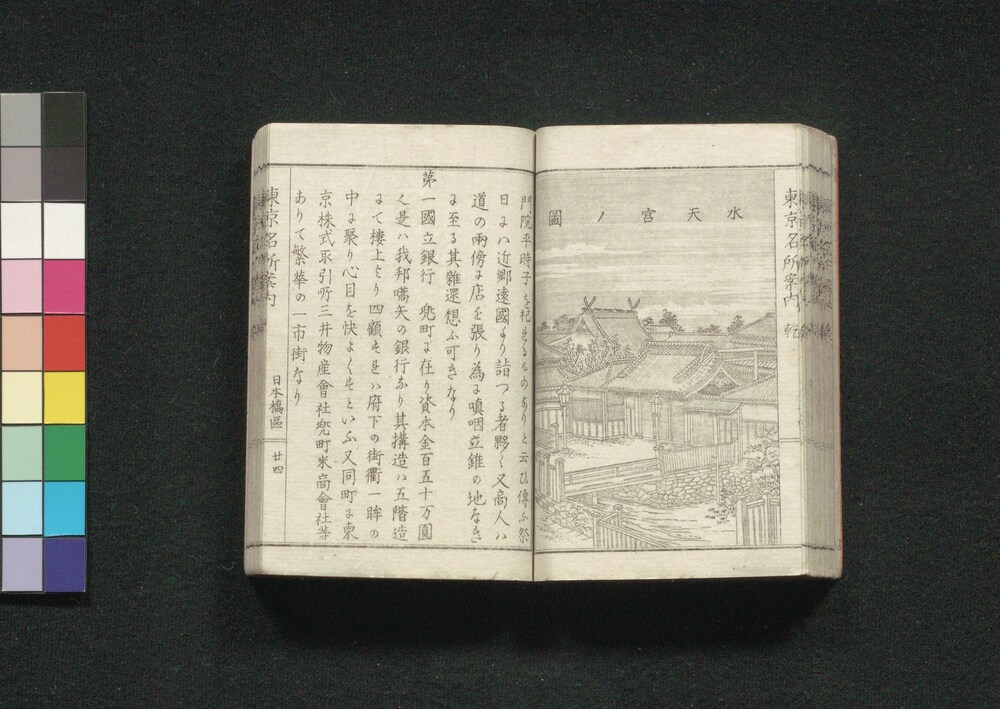 東京名所案内 乾
水天宮ノ圖
門院平時子を祀れるものありと云ひ傳ふ祭
日にハ近郷遠國より詣つる者夥く又商人ハ
道の兩傍に店を張り為に嗔咽立錐の地なき
に至る其雜還想ふ可きなり
第一國立銀行 兜町に在り資本金百五十万圓
く是ハ我邦嚆矢の銀行なり其搆造ハ五階造
にて樓上より四顧すれハ府下の街衢一眸の
中に聚り心目を快よくすといふ又同町に東
京株式取引所三井物産會社兜町米商會社等
ありて繁華の一市街なり
東京名所案内
日本橋區
廿四